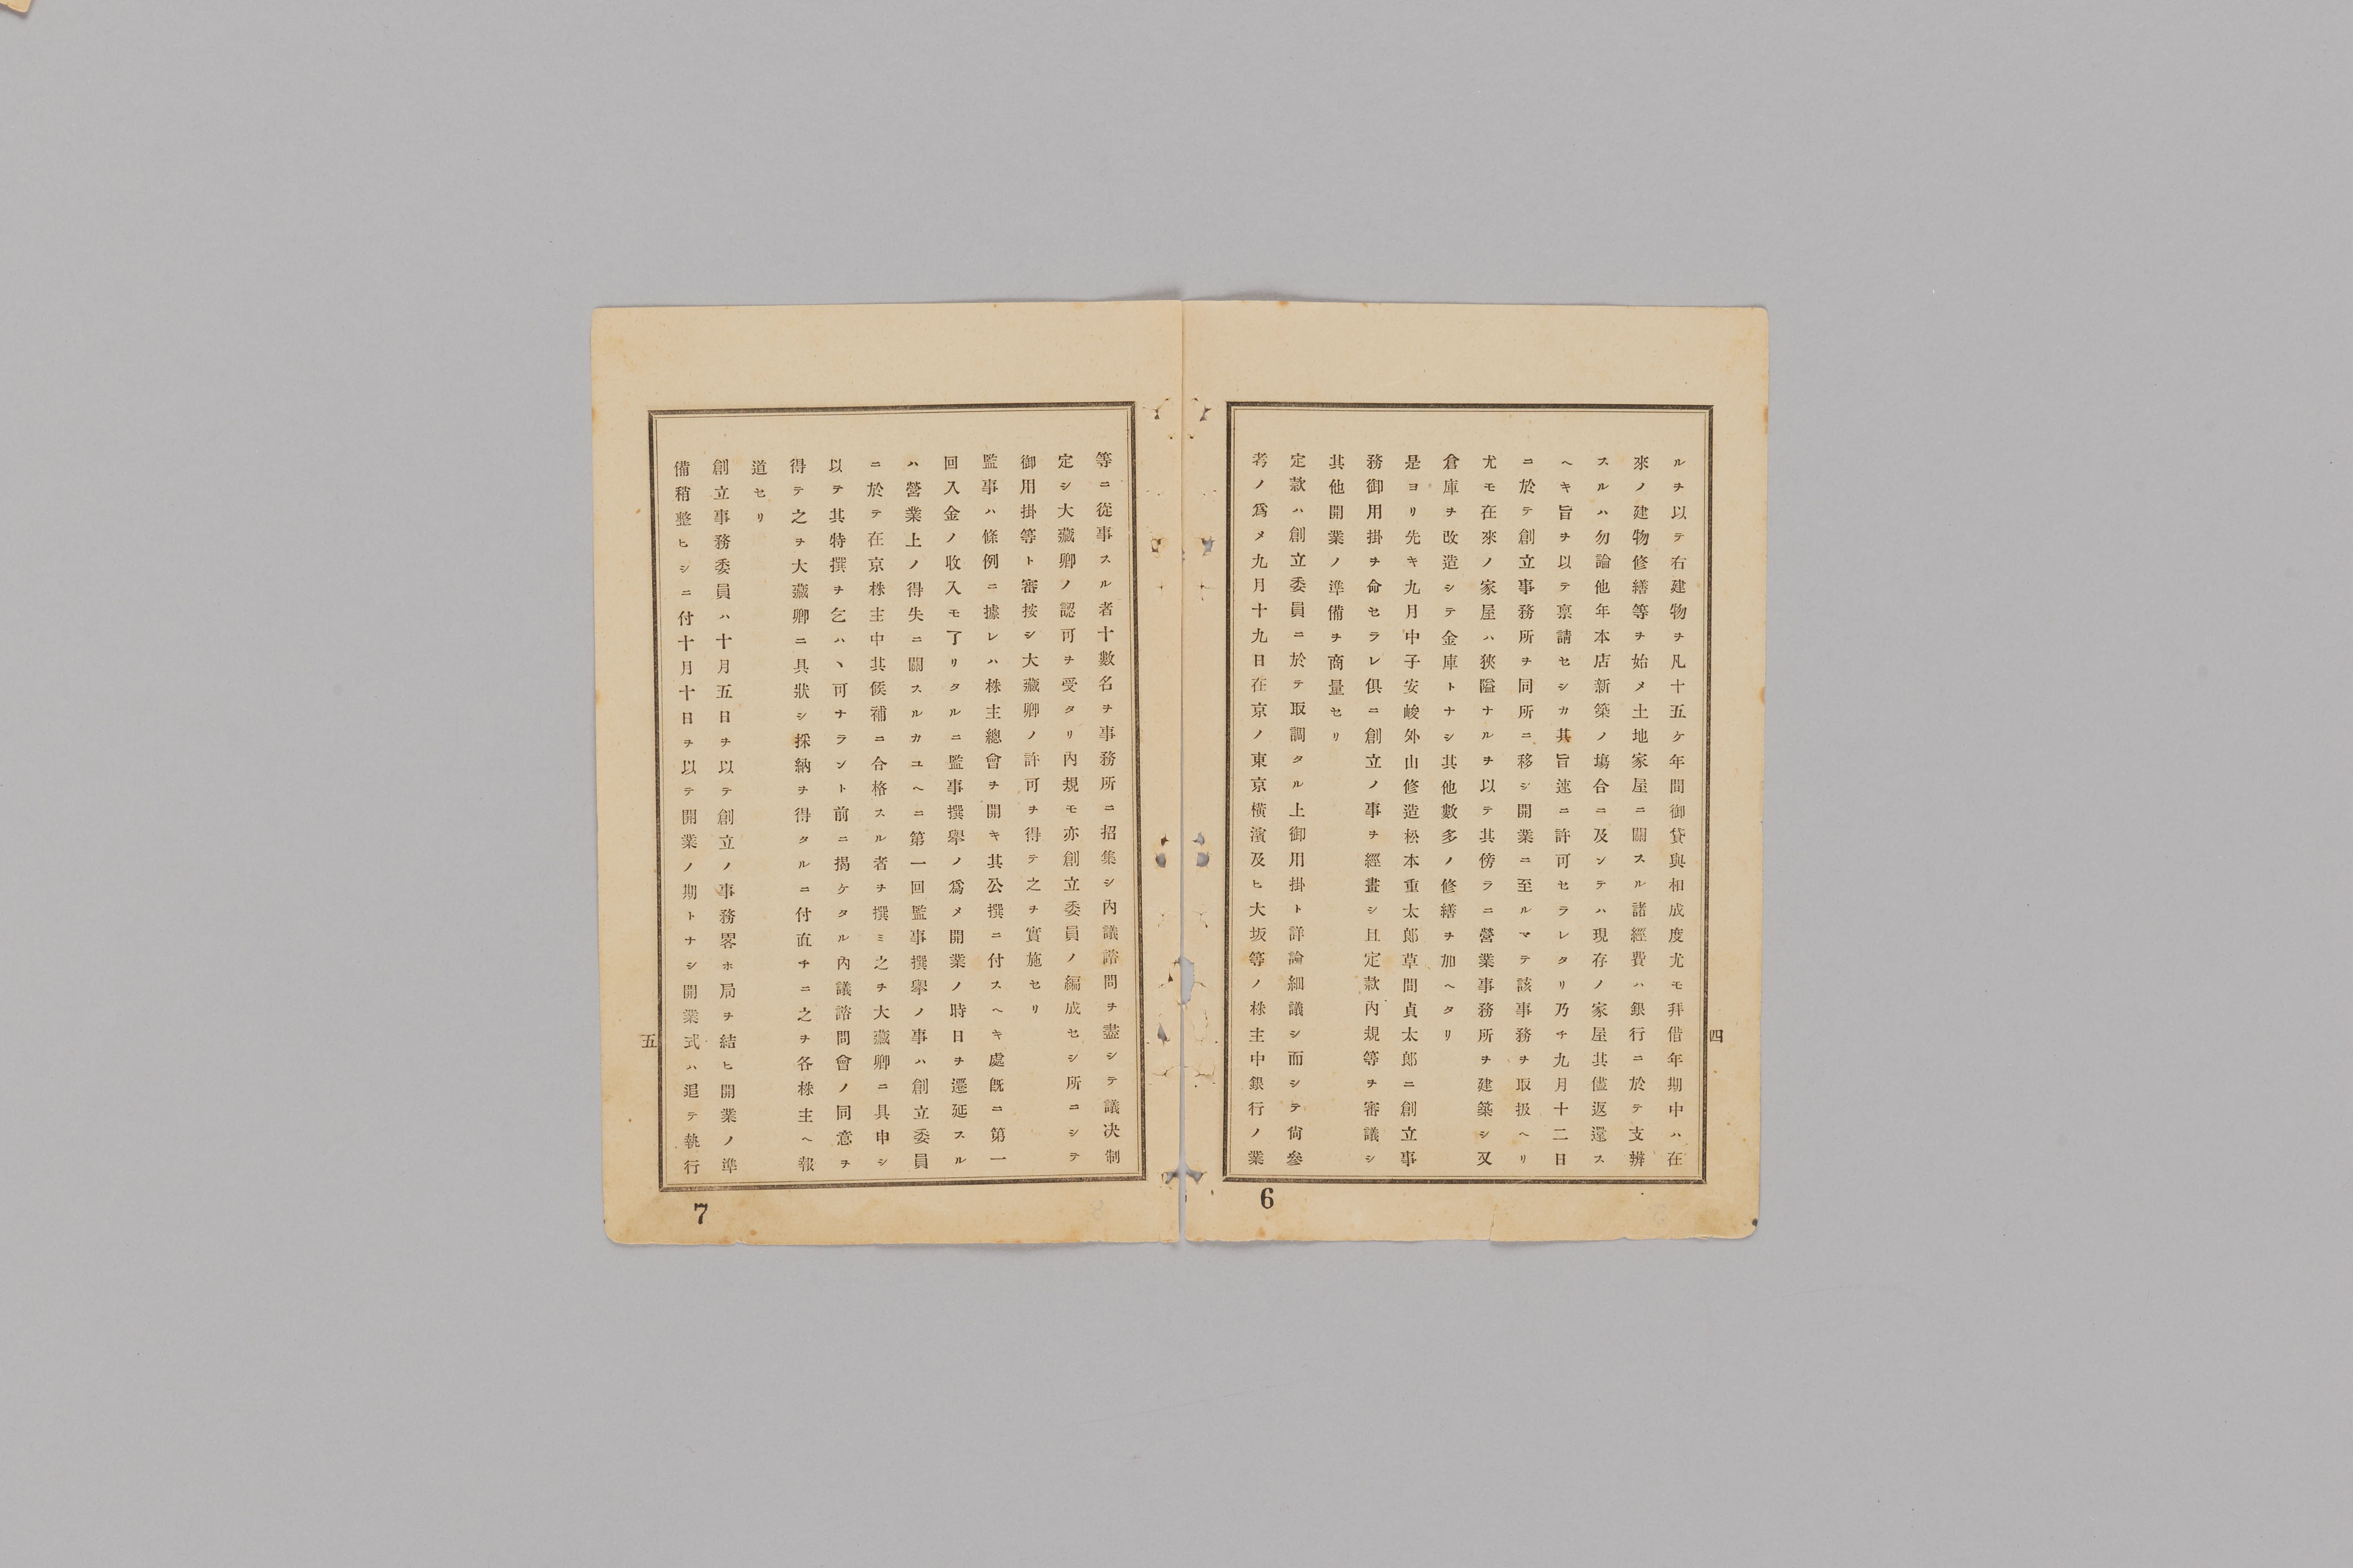 ルヲ以テ右建物ヲ凡十五ケ年間御貸與相成度尤モ拜借年期中ハ在
來ノ建物修繕等ヲ始メ土地家屋ニ關スル諸經費ハ銀行ニ於テ支辨
スルハ勿論他年本店新築ノ塲合ニ及ンテハ現存ノ家屋其儘返還ス
ヘキ旨ヲ以テ禀請セシカ其旨速ニ許可セラレタリ乃チ九月十二日
ニ於テ創立事務所ヲ同所ニ移シ開業ニ至ルマテ該事務ヲ取扱ヘリ
尤モ在來ノ家屋ハ狹隘ナルヲ以テ其傍ラニ營業事務所ヲ建築シ又
倉庫ヲ改造シテ金庫トナシ其他數多ノ修繕ヲ加ヘタリ
是ヨリ先キ九月中子安峻外山修造松本重太郎草間貞太郎ニ創立事
務御用掛ヲ命セラレ俱ニ創立ノ事ヲ經畫シ且定款內規等ヲ審議シ
其他開業ノ準備ヲ商量セリ
定款ハ創立委員ニ於テ取調タル上御用掛ト詳論細議シ而シテ尙參
考ノ爲メ九月十九日在京ノ東京橫濱及ヒ大坂等ノ株主中銀行ノ業
四
6
等ニ從事スル者十數名ヲ事務所ニ招集シ內議諮問ヲ盡シテ議决制
定シ大藏卿ノ認可ヲ受タリ內規モ亦創立委員ノ編成セシ所ニシテ
御用掛等ト審按シ大藏卿ノ許可ヲ得テ之ヲ實施セリ
監事ハ條例ニ據レハ株主總會ヲ開キ其公撰ニ付スヘキ處既ニ第一
回入金ノ收入モ了リタルニ監事撰擧ノ爲メ開業ノ時日ヲ遷延スル
ハ營業上ノ得失ニ關スルカユヘニ第一回監事撰擧ノ事ハ創立委員
ニ於テ在京株主中其候補ニ合格スル者ヲ撰ミ之ヲ大藏卿ニ具申シ
以テ其特撰ヲ乞ハヽ可ナラント前ニ揭ケタル內議諮問會ノ同意ヲ
得テ之ヲ大藏卿ニ具狀シ採納ヲ得タルニ付直チニ之ヲ各株主ヘ報
道セリ
創立事務委員ハ十月五日ヲ以テ創立ノ事務畧ホ局ヲ結ヒ開業ノ準
備稍整ヒシニ付十月十日ヲ以テ開業ノ期トナシ開業式ハ追テ執行
五
7